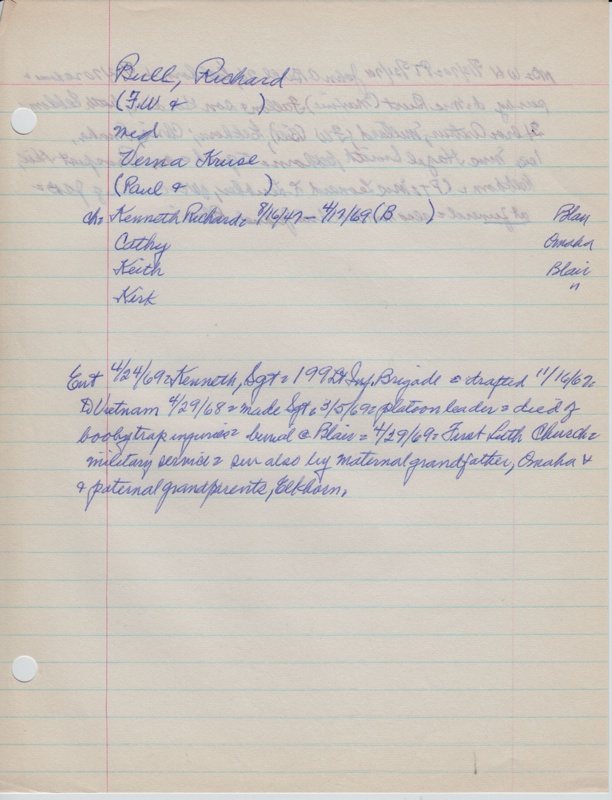 Bull, Richard
(F.W. & )
md
Verna Kruse
(Paul & )
ch: Kenneth Richard= 8/16/47 - 4/17/69 (B ) Blair
Cathy Omaha
Keith Blair
Kirk "
Ent 4/24/69= Kenneth, Sgt= 199 Lt Inf. Brigade = drafted 11/16/67=
to Vietnam 4/29/68= made Sgt= 3/5/69= platoon leader= died of
boobytrap injuries= burial @ Blair= 4/29/69= First Luth Church=
military service= sur also by maternal grandfather, Omaha &
& paternal grandprents, Elkhorn.